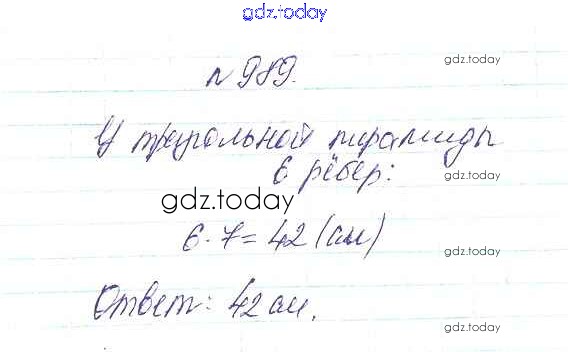 gdz.today
gdz.today
№ 989.
У треугольной пирамиды
gdz.today
6 рёбер:
gdz.today
6 · 7 = 42 (см)
gdz.today
Ответ: 42 см.
gdz.today
gdz.today